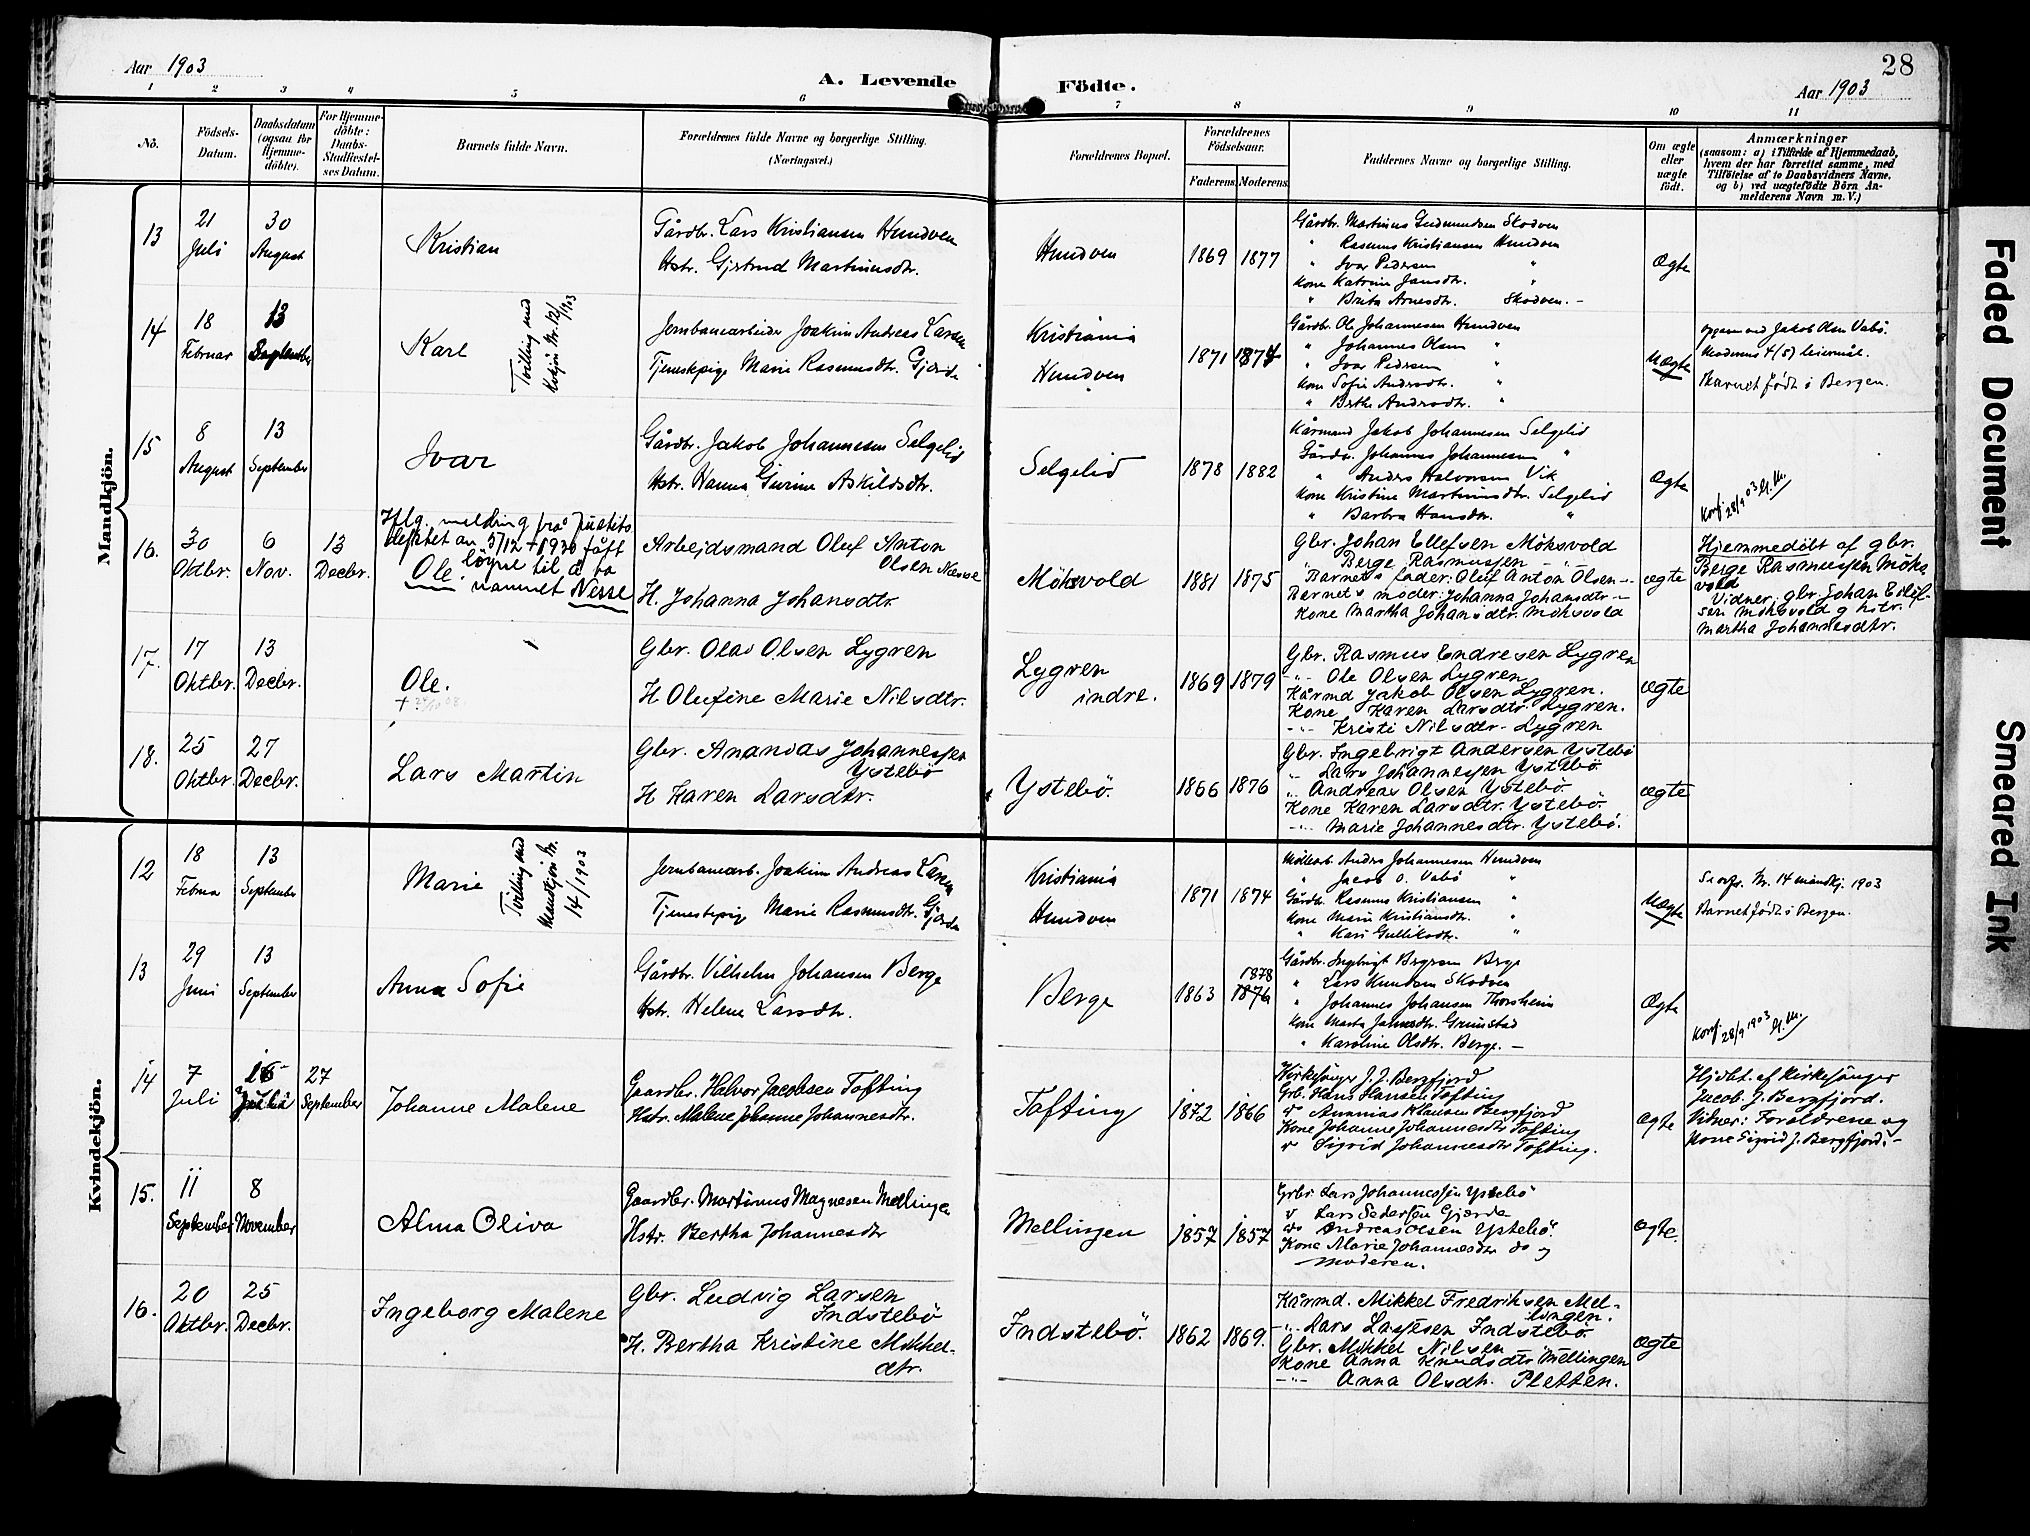 Aar 1903
A. Levende Födte.
28
Aar 1903
1 2 3 4 5 6 7 8 9 10 11
No.
Födsels-
Datum.
Daabsdatum
(ogsaa for
Hjemme-
döbte).
For Hjemme-
döbte:
Daabs-
Stadfæstel-
ses Datum.
Barnets fulde Navn.
Forældrenes fulde Navne og borgerlige Stilling.
(Næringsvei.)
Forældrenes Bopæl.
Forældrenes
Födselsaar.
Faderens. Moderens.
Faddernes Navne og borgerlige Stilling.
Om ægte
eller
uægte
födt.
Anmærkninger
(saasom: a) i Tilfælde af Hjemmedaab,
hvem der har forrettet samme, med
Tilföielse af to Daabsvidners Navne.
og b) ved uægtefödte Börn An-
melderens Navn m. V.)
Mandkjön.
13
21
Juli
30
August
Kristian
Gårdbr. Lars Kristiansen Hundven
Hstr. Gjertrud Martinusdtr.
Hundven
1869 1877
Gårdbr. Martinus Gudmundsen Skodven
" Rasmus Kristiansen Hundven
" Ivar Pedersen "
Kone Katrine Jansdtr. "
" Brita Arnesdtr. Skodven. -
Ægte
14
18
Februar
13
September
Karl
Tvilling med
Kvkjön Nr. 12/1903
Jernbanearbeider Joakim Andreas Larsen
Tjenestepige Marie Rasmusdtr. Gjerde
Kristiania
Hundven
1871 1874
Gårdbr. Ole Johannesen Hundven
" Johannes Olsen "
" Ivar Pedersen "
Kone Sofie Andersdtr. "
" Brithe Andersdtr. "
Uægte
Opgave ved Jakob Olsen Vabö.
Moderens 4(5) leiermål.
Barnet födt i Bergen.
15
8
August
13
September
Ivar
Gårdbr. Jakob Johannesen Selgelid
Hstr. Hanna Gurine Askildsdtr.
Selgelid
1878 1882
Kårmand Jakob Johannesen Selgelid
Gårdbr. Johannes Johannesen "
" Anders Halvorsen Vik
Kone Kristine Martinusdtr. Selgelid
" Barbra Hansdtr. "
Ægte
Konf. 28/9 03 G.M.
16.
30
Oktbr.
6
Nov.
13
Decbr.
Iflg. melding frå Justits
dep'tet av 5/12 1930 fått
löyve til å ta
Ole. namnet Nesse
Arbejdsmand Oluf Anton
Olsen Nesse
H. Johanna Johansdtr.
Möksvold
1881 1875
Gbr. Johan Ellefsen Möksvold
" Berge Rasmussen - " -
Barnets fader: Oluf Anton Olsen -"-
Barnets moder: Johanna Johansdtr -"-
Kone Martha Johansdtr. Möksvold
ægte
Hjemmedöbt af gbr.
Berge Rasmussen Möks-
vold
Vidner: gbr. Johan Ellef-
sen Möksvold g hstr.
Martha Johannesdtr.
17.
17
Oktbr.
13
Decbr.
Ole.
Gbr. Olai Olsen Lygren
H Olufine Marie Nilsdtr.
Lygren
indre.
1869 1879
Gbr. Rasmus Endresen Lygren
-"- Ole Olsen Lygren
Kårmd Jakob Olsen Lygren.
Kone Karen Larsdtr. Lygren.
-"- Kristi Nilsdtr. Lygren
ægte
18.
25
Oktbr.
27
Decbr.
Lars Martin
Gbr. Ananias Johannessen
Ystebö
H Karen Larsdtr.
Ystebö.
1866 1876
Gbr. Ingebrigt Andersen Ystebö
" Lars Johannessen Ystebö
" Andreas Olsen Ystebö
Kone Karen Larsdtr. Ystebö
-"- Marie Johannesdtr. Ystebö.
ægte
Kvindekjön.
12
18
Februa
13
September
Marie
Tvilling med
Mandkjön Nr.
14/1903
Jernbanearb. Joakim Andreas Larsen
Tjenestepig Marie Rasmusdtr. Gjerde
Kristiania
Hundven
1871 1874
Anders Johannesen Hundven
" Jacob O. Vabö "
Gårdbr. Rasmus Kristiansen "
Kone Marie Kristiansdtr. "
" Kari Gulliksdtr. "
Uægte
Se opg. Nr. 14 mandkj. 1903
Barnet födt i Bergen.
13
29
Juni
13
September
Anna Sofie
Gårdbr. Vilhelm Johansen Berge
Hstr. Helene Larsdtr.
Berge
1863 1878
1876
Gårdbr. Ingebrigt Bergesen Berge
" Lars Knudsen Skodven
" Johannes Johansen Thorsheim
Kone Marta Jansdtr. Grimstad
" Karoline Olsdtr. Berge. -
Ægte
Konf. 28/9 1903 G.M.
14
7
Juli
Juli
27
September
Johanne Malene
Gaardbr. Halvor Jacobsen Tofting
Hstr. Malene Johanne Johannesdtr.
Tofting
1872 1866
Kirkesanger J. J. Bergfjord
Grb. Hans Hansen Tofting
" Ananias Klausen Bergfjord
Kone Johanne Johannesdtr Tofting
" Sigrid Johannesdtr Tofting.
ægte
Hjdbt. af Kirkesanger
Jacob J. Bergfjord.
Vidner: Forældrene og
Kone Sigrid J. Bergfjord. -
15.
11
September
8
November
Alma Oliva
Gaardbr. Martinus Magnesen Mellingen
Hstr. Bertha Johannesdtr
Mellingen
1857 1857
Grbr. Lars Johannessen Ystebö
" Lars Pedersen Gjerde
do Andreas Olsen Ystebö.
Kone Marie Johannesdtr do og
Moderen.
ægte.
16.
20
Oktbr.
25
Decbr.
Ingeborg Malene
Gbr. Ludvig Larsen
Indstebö
H. Bertha Kristine Mikkel-
dtr.
Indstebö.
1862 1869.
Kårmd. Mikkel Fredriksen Mel-
lingen.
-"- Lars Larssen Indstebö
Gbr. Mikkel Nilsen -"-
Kone Anna Knudsdtr. Mellingen
-"- Anna Olsdtr. Pletten.
ægte
Faded Document
Smeared Ink